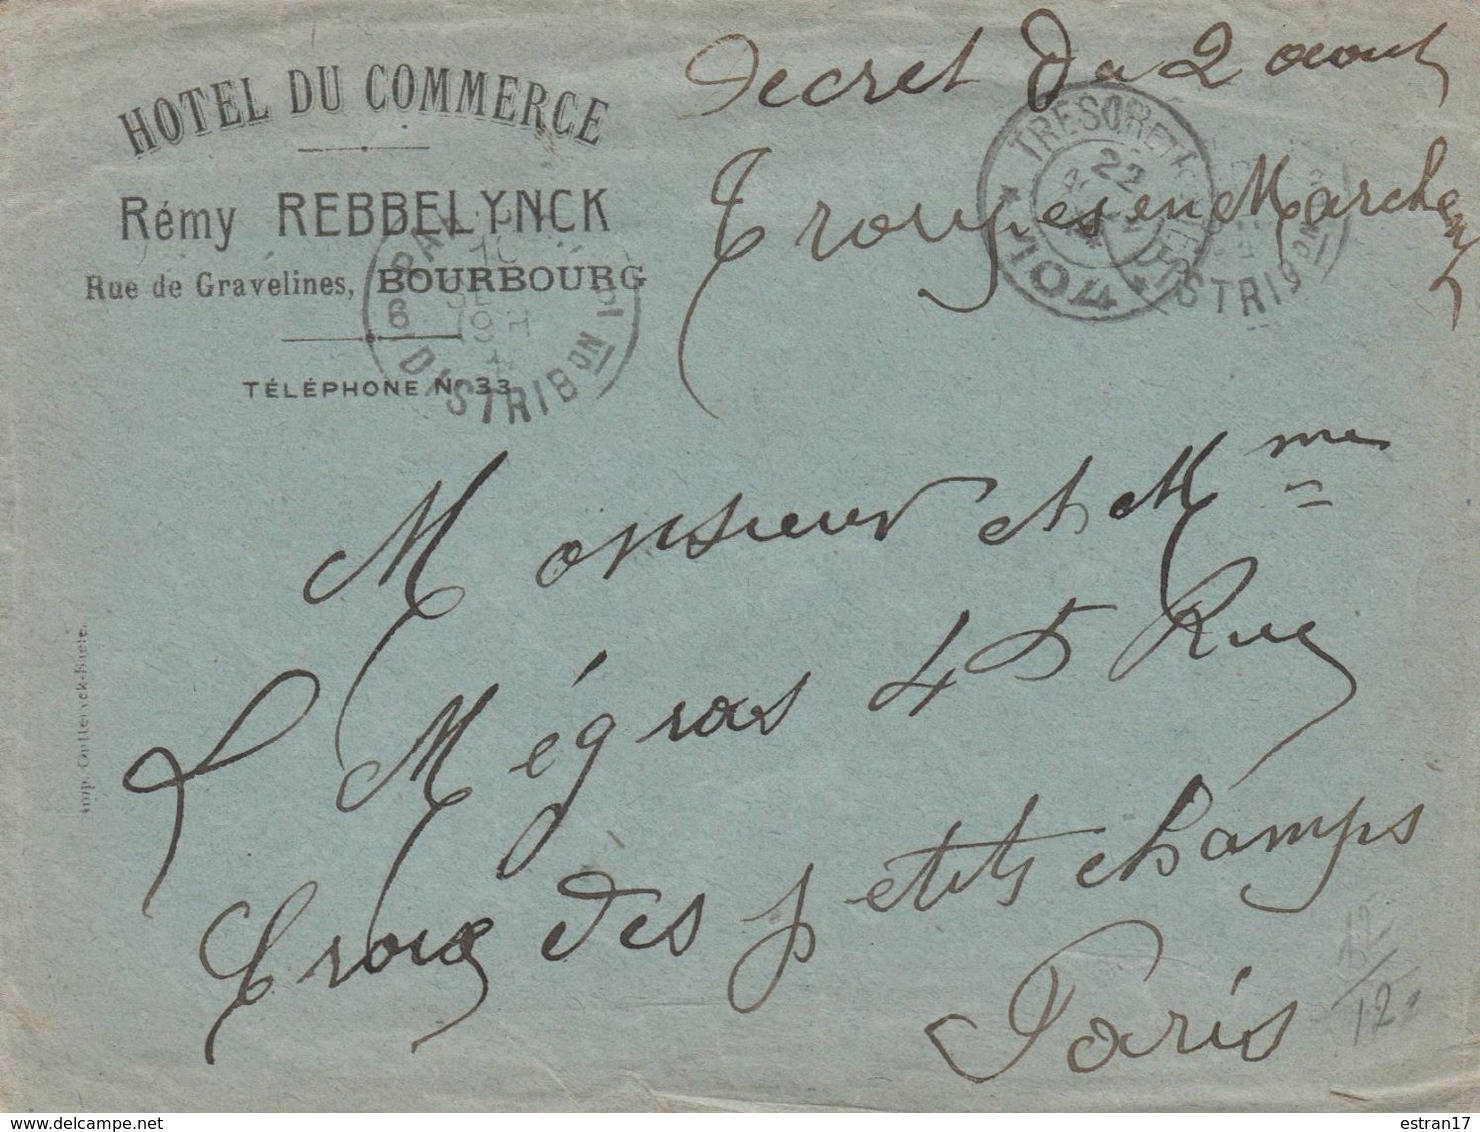 HOTEL DU COMMERCE
Rémy REBBELYNCK
Rue de Gravelines, BOURBOURG
TÉLÉPHONE Nº 33
Decret du 2 aout
Troupes en Marche
TRESOR ET POSTES
22
* 104 *
DISTRIBON
PARIS
10
6 DISTRIBON
19H
Monsieur et Mme
Mégras 45 Rue
Croix des petits champs
Paris
12
12
www.delcampe.net
estran17